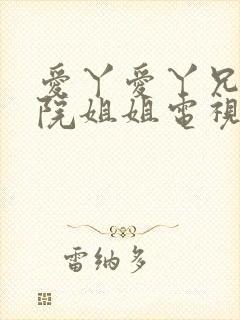 愛丫愛丫兄
院姐姐電視
雷纳多